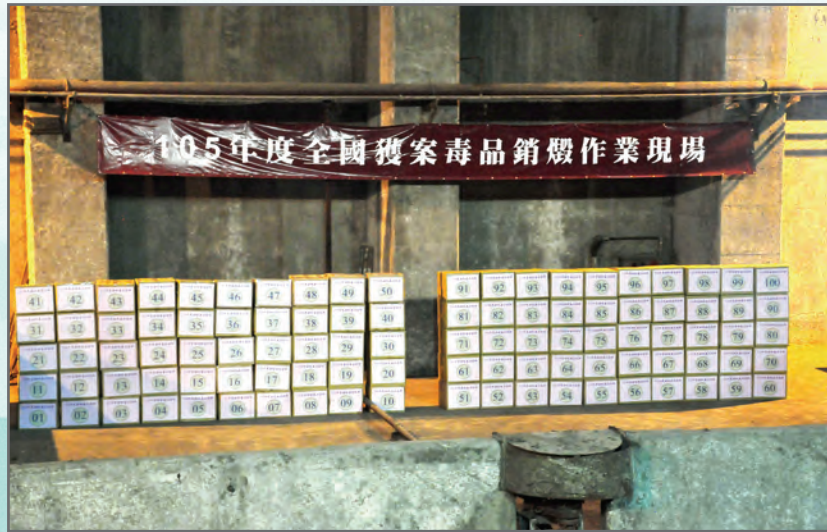 105年度全國獲案毒品銷燬作業現場
41 42 43 44 45 46 47 48 49 50
31 32 33 34 35 36 37 38 39 40
21 22 23 24 25 26 27 28 29 30
11 12 13 14 15 16 17 18 19 20
01 02 03 04 05 06 07 08 09 10
91 92 93 94 95 96 97 98 99 100
81 82 83 84 85 86 87 88 89 90
71 72 73 74 75 76 77 78 79 80
61 62 63 64 65 66 67 68 69 70
51 52 53 54 55 56 57 58 59 60